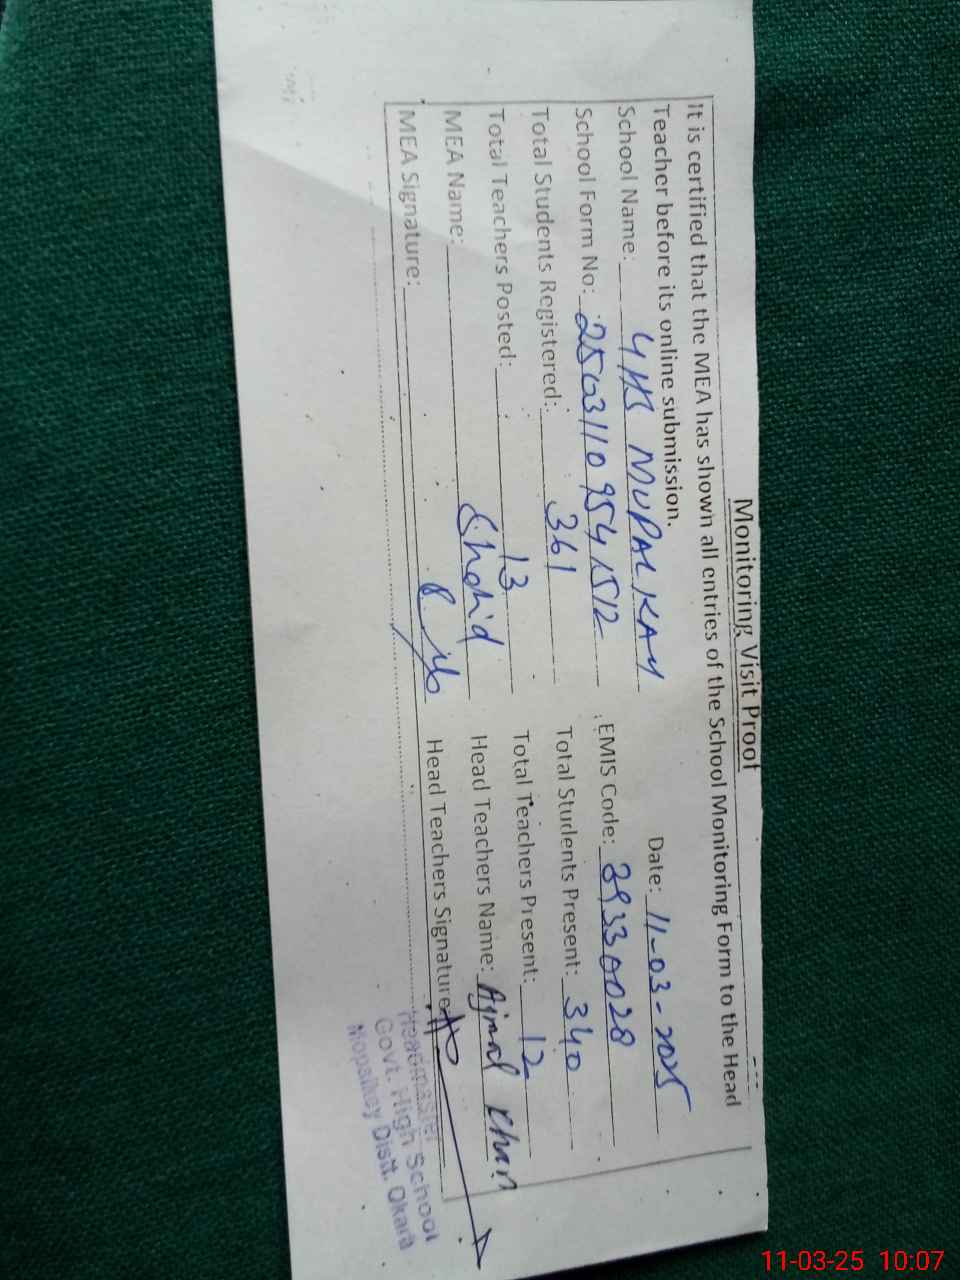 Monitoring Visit Proof
It is certified that the MEA has shown all entries of the School Monitoring Form to the Head
Teacher before its online submission.
Date: 11-03-2025
School Name: GHS MUPALKAY
School Form No: 25031109541512 EMIS Code: 39330028
Total Students Registered: 361 Total Students Present: 340
Total Teachers Posted: 13 Total Teachers Present: 12
MEA Name: Shahid Head Teachers Name: Ajmal Khan
MEA Signature: Head Teachers Signature
Headmaster
Govt. High School
Mopalkey Distt. Okara
11-03-25 10:07